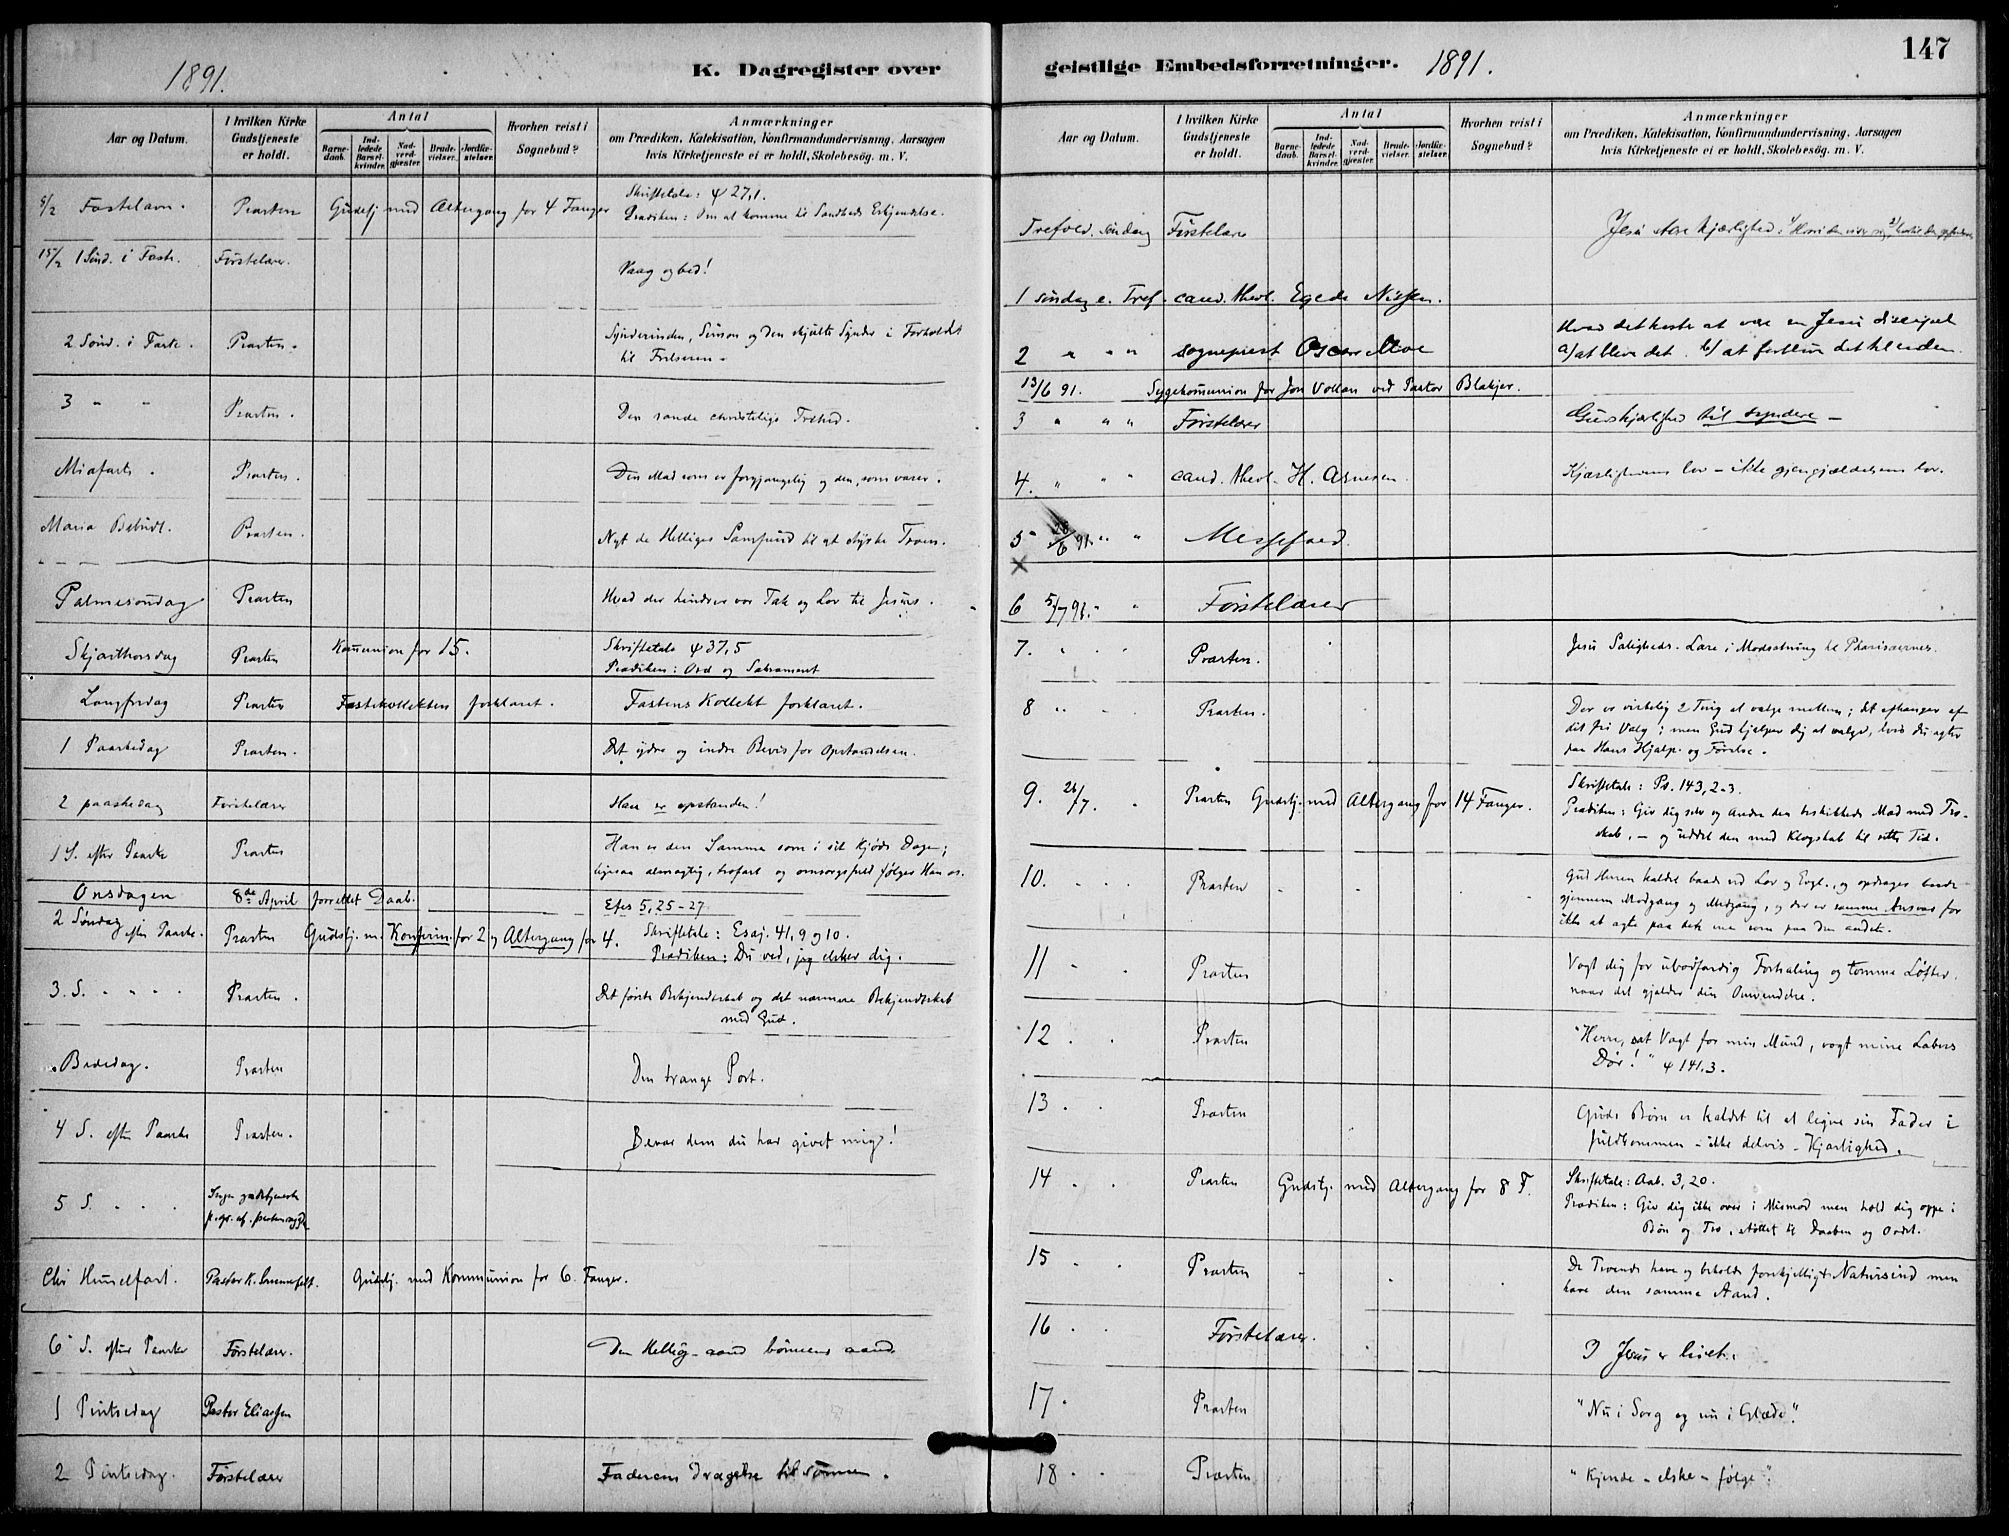 1891.
K. Dagregister over
Aar og Datum.
I hvilken Kirke Gudstjeneste er holdt.
Antal
Barnedaab.
Indledede Barselkvinder.
Nadverdgjæster
Brudevielser.
Jordfæstelser.
Hvorhen reist i Sognebud?
Anmærkninger
om Prædiken, Katekisation, Konfirmandundervisning, Aarsagen
hvis Kirketjeneste ei er holdt, Skolebesøg. m. V.
8/2 Fastelavn. Præsten Gudstj med Altergang for 4 Fanger Skriftetale: ψ 27,1.
Prædiken: Om at komme til Sandheds Erkjendelse.
15/2 1 Sønd. i Faste. Førstelærer. Vaag og bed!
2 Sønd. i Faste. Præsten. Synderinden, Simon og den skjulte Synder i Forholdet
til Frelseren.
3 " " Præsten. Den sande christelige Frihed.
Midfaste. Præsten. Den Mad som er forgjængelig og den, som varer.
Maria Bebud. Præsten. Nyt de Helliges Samfund til at styrke Troen.
Palmesøndag Præsten Hvad der hindrer vor Tak og Lov til Jesus.
Skjærthorsdag Præsten Kommunion for 15. Skriftetale ψ 37,5
Prædiken: Ord og Sakrament
Langfredag Præsten Fastekollekten forklaret. Fastens Kollekt forklaret.
1 Paaskedag Præsten. Det ydre og indre Bevis for Opstandelsen.
2 paaskedag Førstelærer Han er opstanden!
1 S. efter Paaske Præsten Han er den Samme som i sit Kjøds Dage;
ligesaa almægtig, trofast og omsorgsfuld følger Han os.
Onsdagen 8de April forrettet Daab. Efes 5, 25-27.
2 Søndag efter Paaske. Præsten Gudstj. m. Konfirm. for 2 og Altergang for 4. Skriftetale: Esaj. 41, 9 og 10.
Prædiken: Du ved, jeg elsker dig.
3. S. " " " Præsten. Det første Bekjendtskab og det nærmere Bekjendtskab
med Gud.
Bededag. Præsten Den trange Port.
4 S. efter Paaske Præsten. Bevar dem du har givet mig!
5 S. " " Ingen gudstjeneste
p. gr. af præstens
Chr Himmelfart. Pastor K. Gudstj. med Kommunion for 6. Fanger.
6 S. efter Paaske Førstelærer. Den Hellig-aand bønnens aand
1 Pintsedag Pastor Eliassen
2 Pintsedag. Førstelærer Faderens dragelse til sønnen.
geistlige Embedsforretninger. 1891.
147
Aar og Datum.
I hvilken Kirke Gudstjeneste er holdt.
Antal
Barnedaab.
Indledede Barselkvinder.
Nadverdgjæster
Brudevielser.
Jordfæstelser.
Hvorhen reist i Sognebud?
Anmærkninger
om Prædiken, Katekisation, Konfirmandundervisning, Aarsagen
hvis Kirketjeneste ei er holdt, Skolebesøg. m. V.
Trefold. søndag Førstelærer Jesu store kjærlighed: 1) Hvori den viser sig, 2)
1 søndag e. Tref. cand. theol. Egede Nissen.
2 " " " sogneprest Oscar Moe Hvad det koste at være en Jesu discipel
a) at blive det. b) at forblive det til enden.
13/6 91. Sygekommunion for Jon Vollan ved Pastor Blakjer.
3 " " " Førstelærer Guds kjærlighed til syndere –
4. " " " cand. theol. H. Asnesen. Kjærlighedens lov – ikke gjengjældelsens lov.
5 28/6 91. " " Messefald.
6 5/7 91. " " Førstelærer
7. " " Præsten. Jesu Saligheds-Lære i Modsætning til Pharisæernes.
8 " " Præsten. Der er virkelig 2 Ting at vælge mellem; det afhænger af
dit fri Valg; men Gud hjelper dig at vælge, hvis du agter
paa Hans Hjælp og Førelse.
9. 26/7. " Præsten Gudstj. med Altergang for 14 Fanger. Skriftetale: Ps. 143, 2-3.
Prædiken: Giv dig selv og Andre den beskikkede Mad med Tro-
skab, – og uddel den med Klogskab til rette Tid.
10. " " Præsten Gud Herren kaldet baade ved Lov og Evgl., og opdrager baade
gjennem Modgang og Medgang, og der er samme Ansvar for
ikke at agte paa det ene som paa den andet.
11 " " Præsten Vogt dig for ubodfærdig Forhaling og tomme Løfter,
naar det gjælder din Omvendelse.
12 . . Præsten "Herre, sæt Vagt for min Mund, vogt mine Læbers
Dør!" ψ 141,3.
13 . . Præsten Guds Børn er kaldet til at ligne sin Fader i
fuldkommen – ikke delvis – Kjærlighed.
14 . . Præsten Gudstj. med Altergang for 8 F. Skriftetale: Aab. 3,20.
Prædiken: Giv dig ikke over i Mismod men hold dig oppe i
Bøn og Tro, støttet til Daaben og Ordet.
15 . . Præsten De Troende have og beholde forskjelligt Natursind men
have den samme Aand.
16 . . Førstelærer. I Jesus er livet.
17 . Præsten "Nu i Sorg og nu i Glæde".
18 . . Præsten "Kjende – elske – følge".